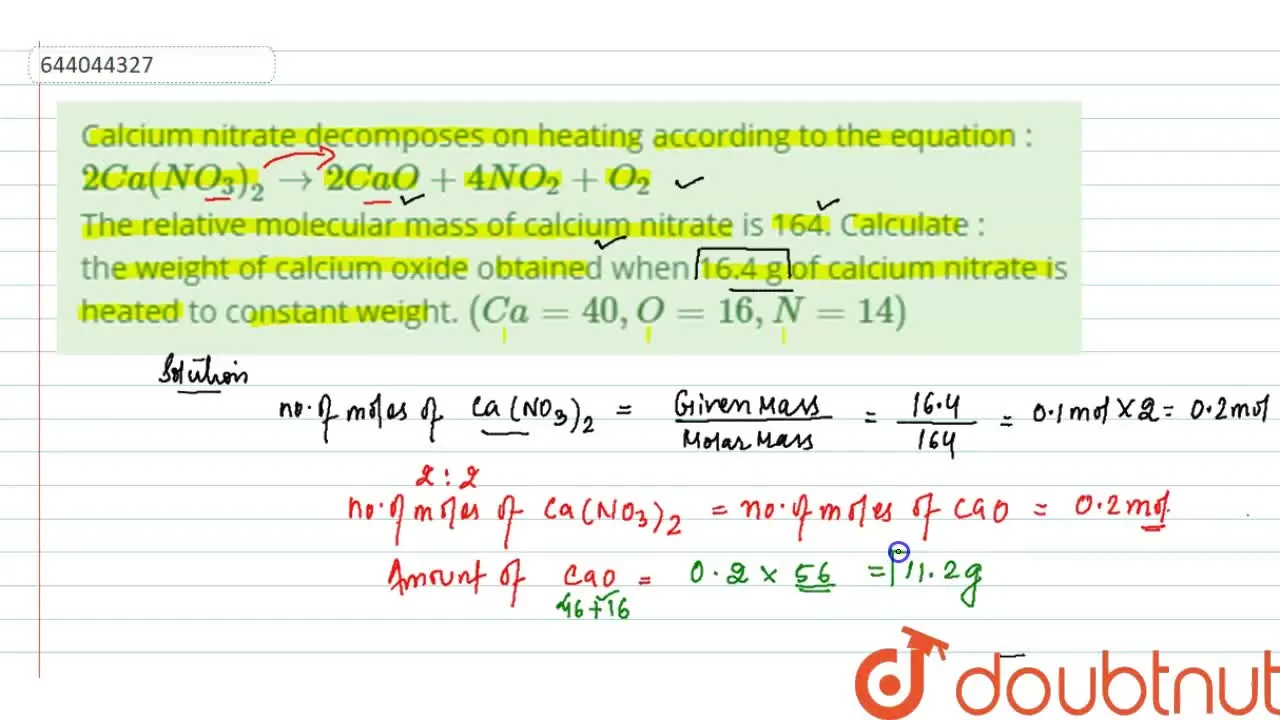 644044327
Calcium nitrate decomposes on heating according to the equation :
2Ca(NO₃)₂ → 2CaO + 4NO₂ + O₂
The relative molecular mass of calcium nitrate is 164. Calculate :
the weight of calcium oxide obtained when 16.4 g of calcium nitrate is
heated to constant weight. (Ca = 40, O = 16, N = 14)
Solution
no. of moles of Ca(NO₃)₂ = Given Mass / Molar Mass = 16.4 / 164 = 0.1 mol × 2 = 0.2 mol
2 : 2
no. of moles of Ca(NO₃)₂ = no. of moles of CaO = 0.2 mol
Amount of CaO = 0.2 × 56 = 11.2g
46+16
doubtnut